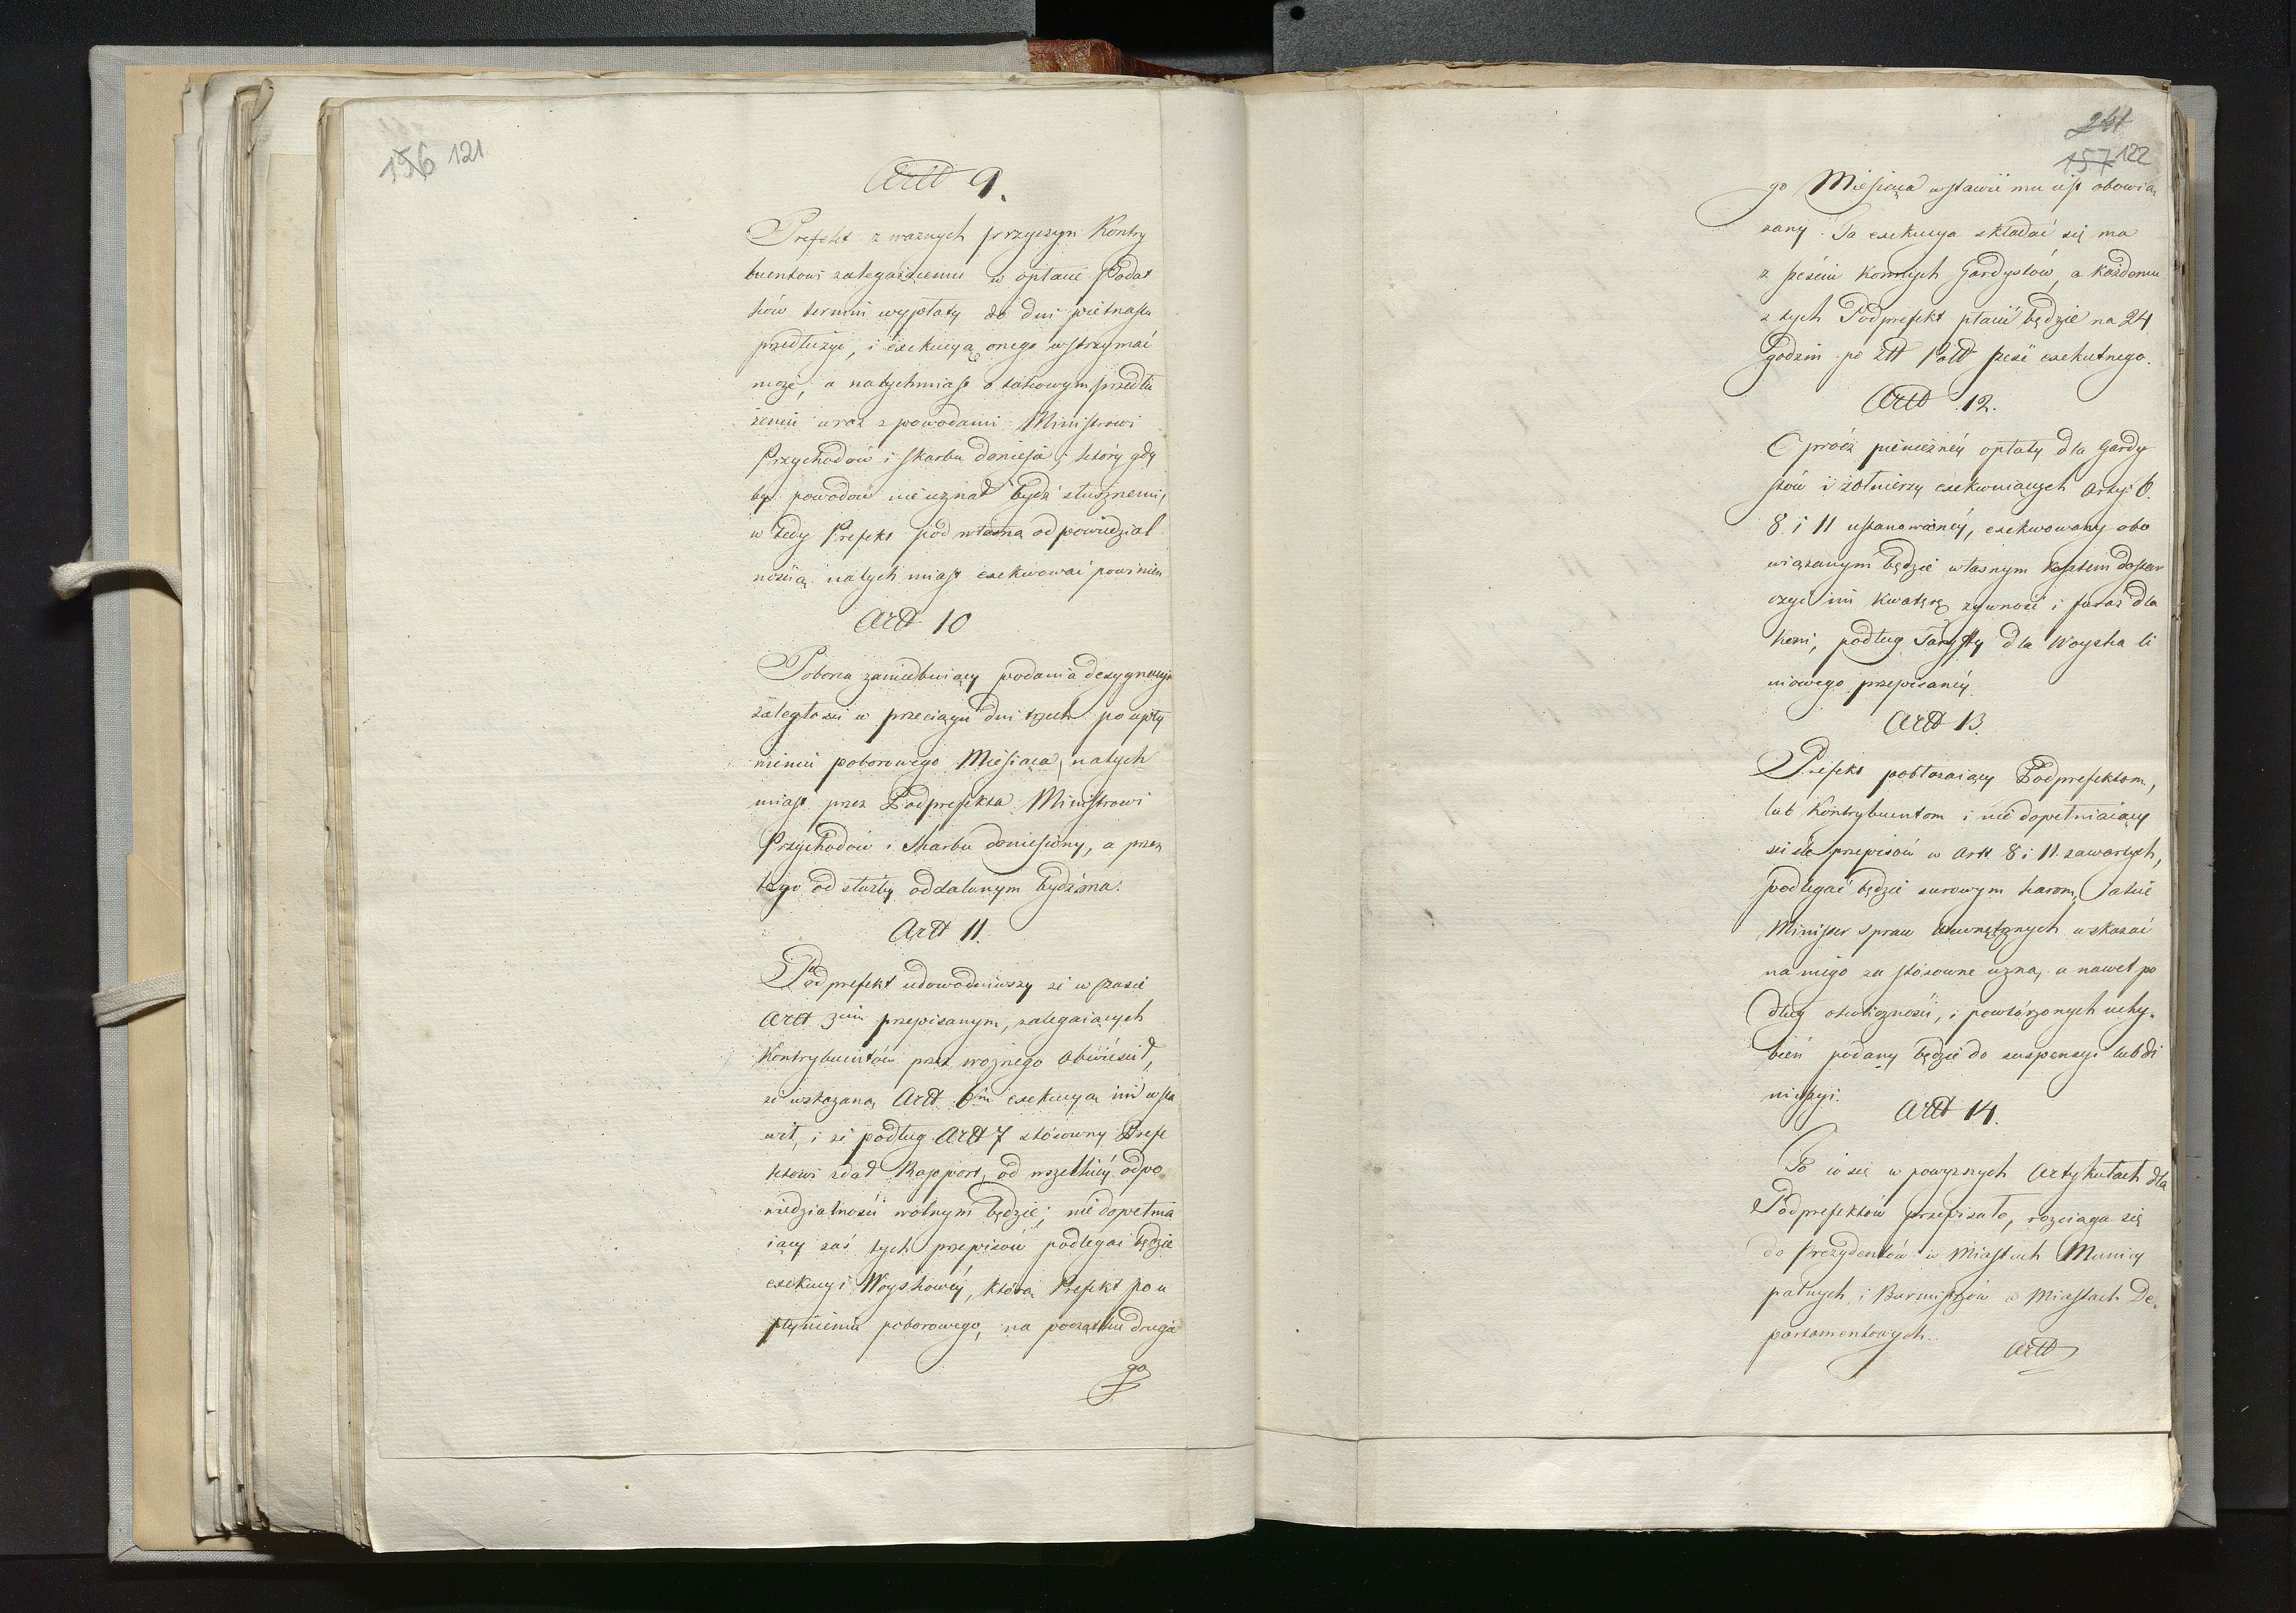 156 121
Artt 9.
Prefekt z ważnych przyczyn Kontry
buentowi zalegaiącemu w opłacie Podat
ków termin wypłaty do dni pietnastu
przedłużyć, i exekucyą onego wstrzymać
może, a natychmiast o takowym przedłu
żeniu wraz z powodami Ministrowi
Przychodów i Skarbu doniesie, który gdy
by powodów nie uznał bydź słusznemi,
w tedy Prefekt pod własną odpowiedzial
nością natych miast exekwować powinien
Artt 10
Poborca zaniedbuiący podania designacyi
zaległości w przeciągu dni trzech po upły
nieniu poborowego Miesiąca, natych
miast przez Podprefekta Ministrowi
Przychodów i Skarbu doniesiony, a przez
tego od służby oddalonym bydź ma.
Artt 11.
Podprefekt udowodniwszy że w czasie
Artt 3cim przepisanym, zalegaiących
Kontrybuentów przez woznego obwieścił,
że wskazaną Artt 6m exekucyą im wsta
wił, i że podług Artt 7 stósowny Prefe
ktowi zdał Rapport, od wszelkiéy odpo
wiedzialności wolnym będzie; nie dopełnia
iący zaś tych przepisów podlegać będzie
exekucyi Woyskowéy, którą Prefekt po u
płynieniu poborowego, na początku drugie
go
241
157 122
go Miesiąca wstawić mu iest obowią
zany. Ta exekucya składać się ma
z sześciu konnych Gardystów, a każdemu
z tych Podprefekt płacić będzie na 24
godzin po Ztt Poltt sześć exekutnego.
Artt 12.
Oprócz pieniężnéy opłaty dla Gardy
stów i żołnierzy exekwuiących Arty: 6.
8. i 11 ustanowionéy, exekwowany obo
wiązanym będzie własnym kosztem dostar
czyć im kwaterę żywność i furaż dla
koni, podług Taryffy dla Woyska li
niowego przepisanéy.
Artt 13.
Prefekt pobłażaiący Podprefektom,
lub Kontrybuentom i nie dopełniaiący
ściśle przepisów w Artt 8 i 11 zawartych,
podlegać będzie surowym karom, iakie
Minister Spraw Wewnętrznych wskazać
na niego za stósowne uzna, a nawet po
dług okoliczności, i powtórzonych uchy-
bień podany będzie do suspensyi lub di
missyi.
Artt 14.
To co się w powyższych Artykułach dla
Podprefektów przepisało, rozciąga się
do Prezydentów w Miastach Municy
palnych, i Burmistrzów w Miastach De-
partamentowych.
Artt